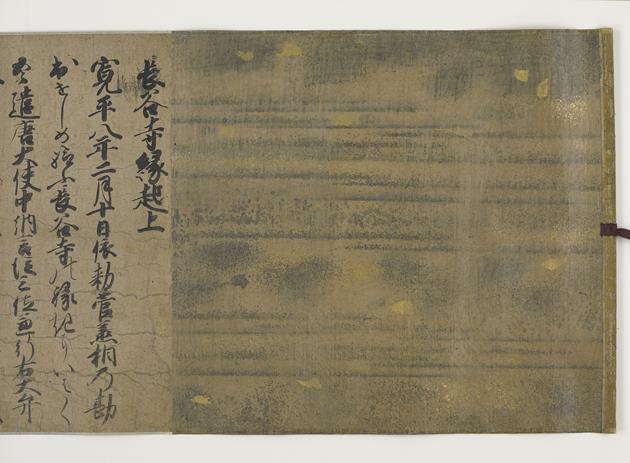 長谷寺縁起上
寛平八年二月十日依勅菅丞相乃勘
おをしめ給ふ長谷寺の縁起にいはく
遣唐大使中納言従三位兼行右大弁